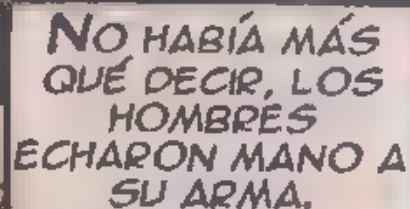 NO HABÍA MÁS
QUÉ DECIR, LOS
HOMBRES
ECHARON MANO A
SU ARMA.